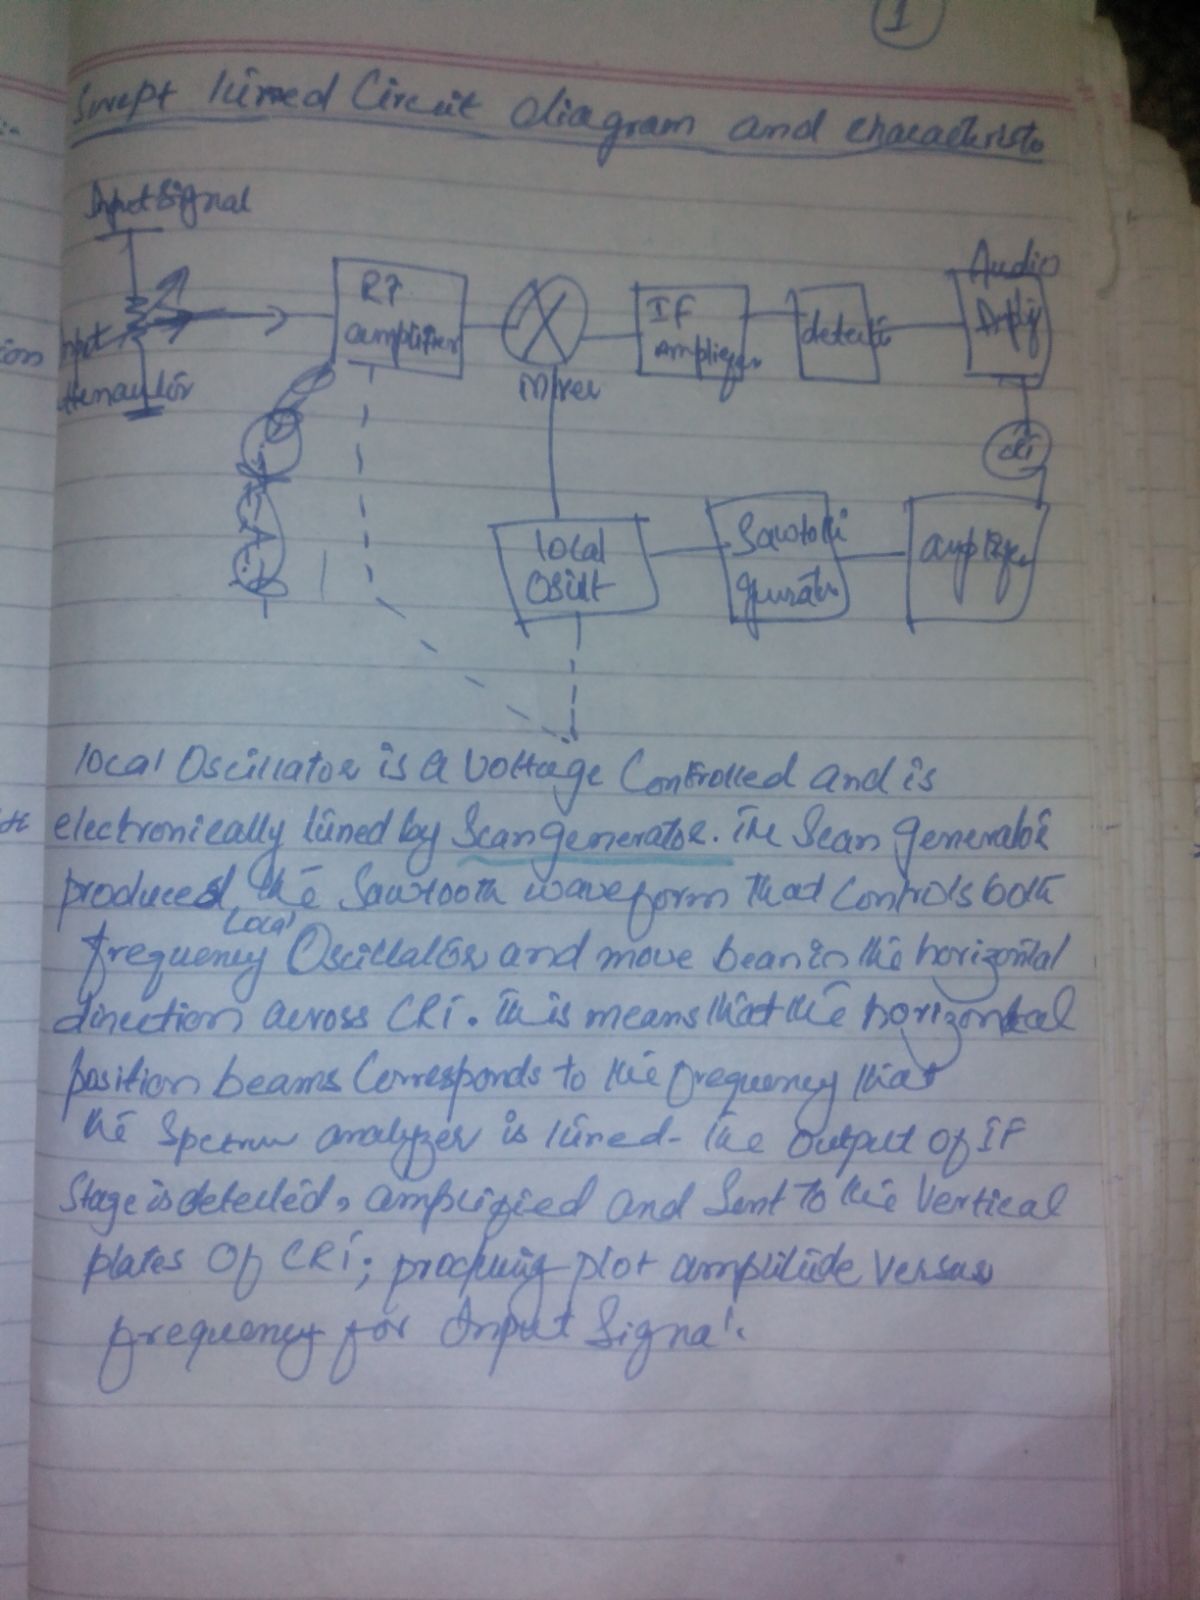 1
Swept tuned Circuit diagram and characteristo
Input Signal
Audio
Amply
RF
amplifier
IF
Amplifier
detecti
Input
Attenautor
Mixer
CRT
local
Osillt
Sawtoth
genrator
amplifier
local Oscillator is a voltage Controlled and is
electronically tuned by Scan generator. The Scan generator
produced the Sawtooth waveform that Controls both
Local
frequency Oscillator and move bean in the horizontal
direction across CRT. This means that the horizontal
position beams Corresponds to the frequency that
the Spectrum analyzer is tuned- the output of IF
Stage is detected, amplified and Sent To the Vertical
plates Of CRT; producing plot amplitude versus
frequency for Input Signal.